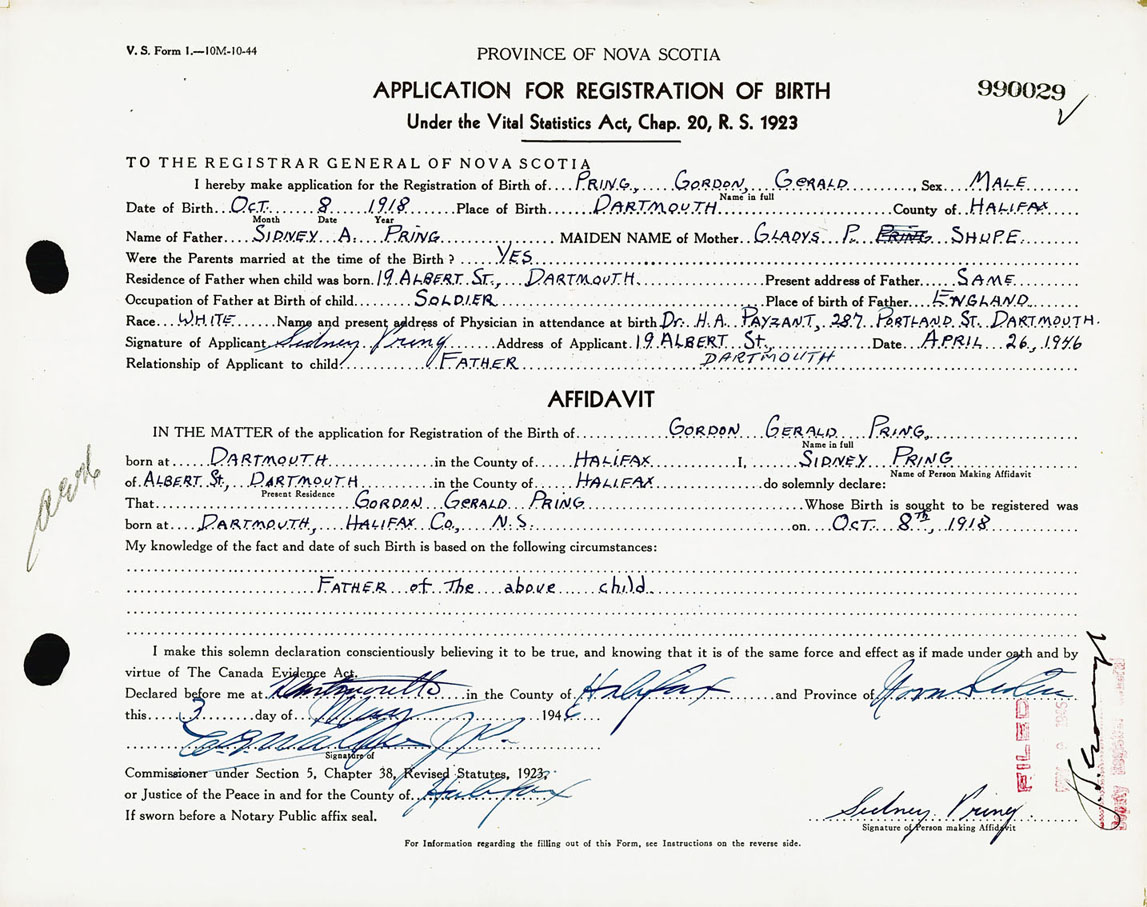 V. S. Form 1.—10M-10-44
PROVINCE OF NOVA SCOTIA
APPLICATION FOR REGISTRATION OF BIRTH
990029
Under the Vital Statistics Act, Chap. 20, R. S. 1923
TO THE REGISTRAR GENERAL OF NOVA SCOTIA
I hereby make application for the Registration of Birth of PRING, GORDON, GERALD, Sex MALE
Name in full
Date of Birth OCT. 8 1918 Place of Birth DARTMOUTH County of HALIFAX
Month Date Year
Name of Father SIDNEY A. PRING MAIDEN NAME of Mother GLADYS P. PRING SHUPE.
Were the Parents married at the time of the Birth ? YES
Residence of Father when child was born. 19 ALBERT ST., DARTMOUTH Present address of Father SAME
Occupation of Father at Birth of child SOLDIER Place of birth of Father ENGLAND
Race WHITE Name and present address of Physician in attendance at birth Dr. H. A. PAYZANT, 287 PORTLAND ST. DARTMOUTH.
Signature of Applicant Sidney Pring Address of Applicant 19 ALBERT ST., Date APRIL 26, 1946
DARTMOUTH
Relationship of Applicant to child FATHER
AFFIDAVIT
IN THE MATTER of the application for Registration of the Birth of GORDON GERALD PRING,
Name in full
born at DARTMOUTH in the County of HALIFAX I, SIDNEY PRING
Name of Person Making Affidavit
of ALBERT ST., DARTMOUTH in the County of HALIFAX do solemnly declare:
Present Residence
That GORDON GERALD PRING Whose Birth is sought to be registered was
born at DARTMOUTH, HALIFAX CO., N.S. on OCT. 8TH, 1918
My knowledge of the fact and date of such Birth is based on the following circumstances:
FATHER of The above child
I make this solemn declaration conscientiously believing it to be true, and knowing that it is of the same force and effect as if made under oath and by
virtue of The Canada Evidence Act.
Declared before me at Dartmouth in the County of Halifax and Province of Nova Scotia
this 3 day of May 1946
J.P.
Signature of
Commissioner under Section 5, Chapter 38, Revised Statutes, 1923,
or Justice of the Peace in and for the County of Halifax
If sworn before a Notary Public affix seal.
Sidney Pring
Signature of Person making Affidavit
For Information regarding the filling out of this Form, see Instructions on the reverse side.
FILED